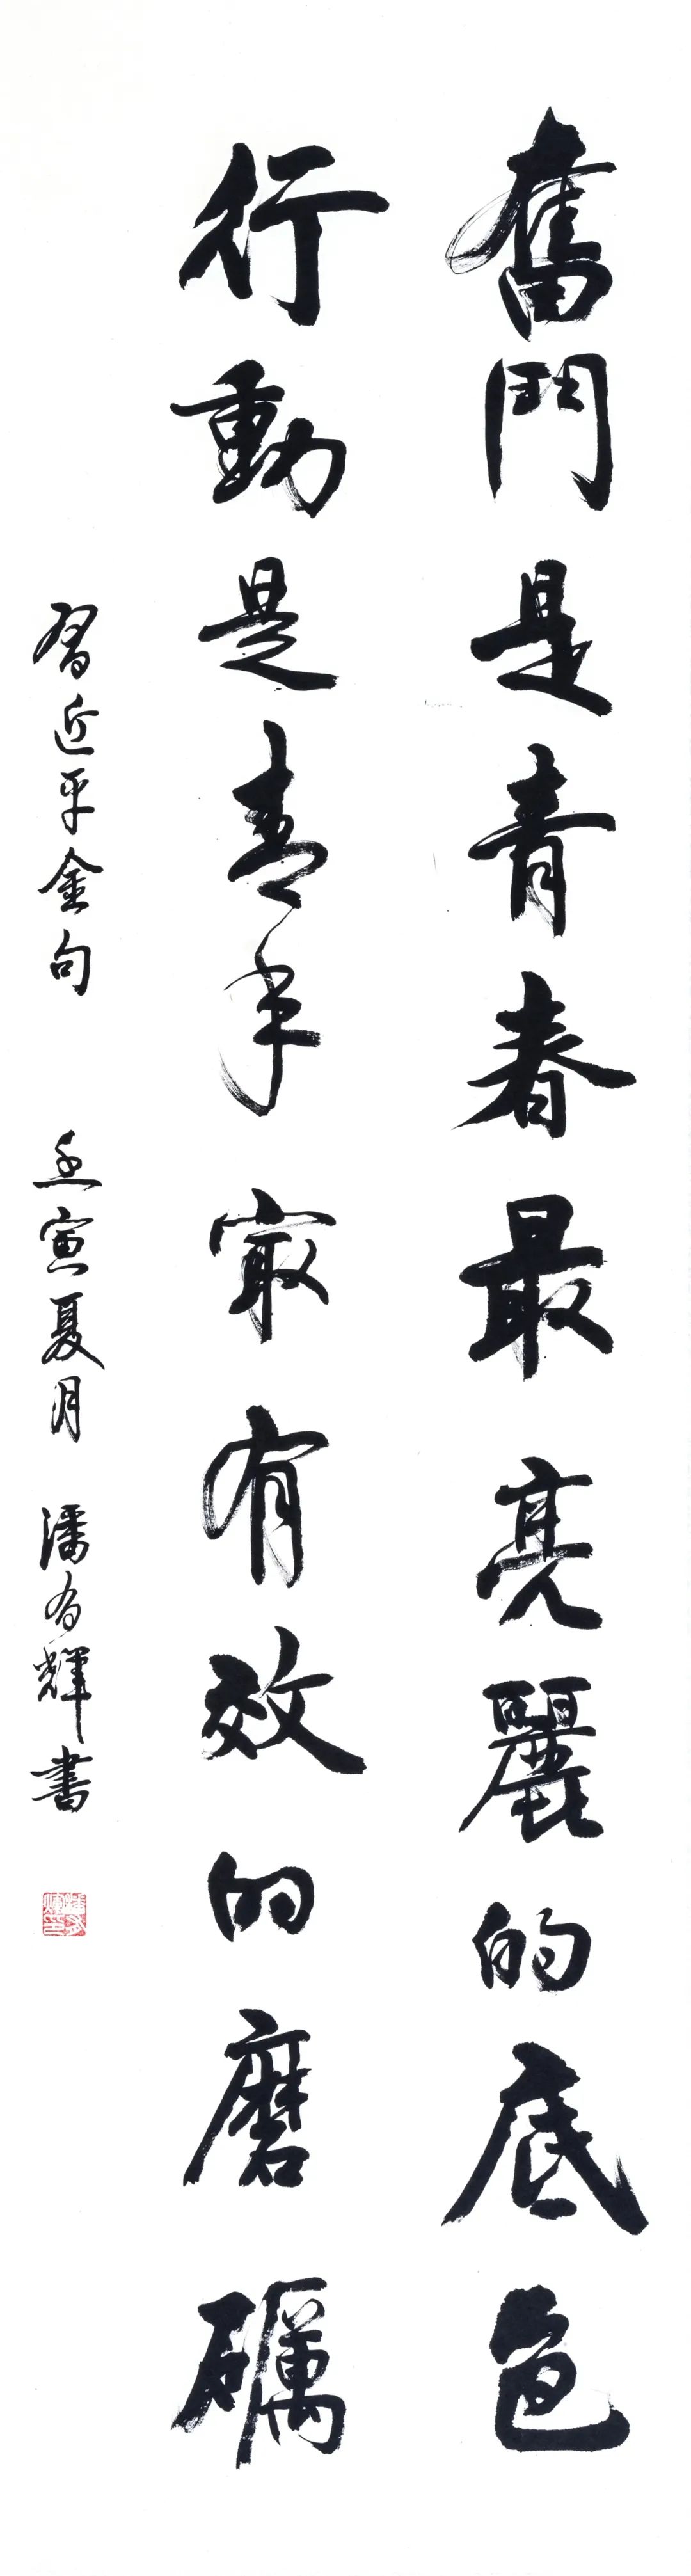 奮鬥是青春最亮麗的底色
行動是青年寂有效的磨礪
習近平金句 壬寅夏月 潘有輝書